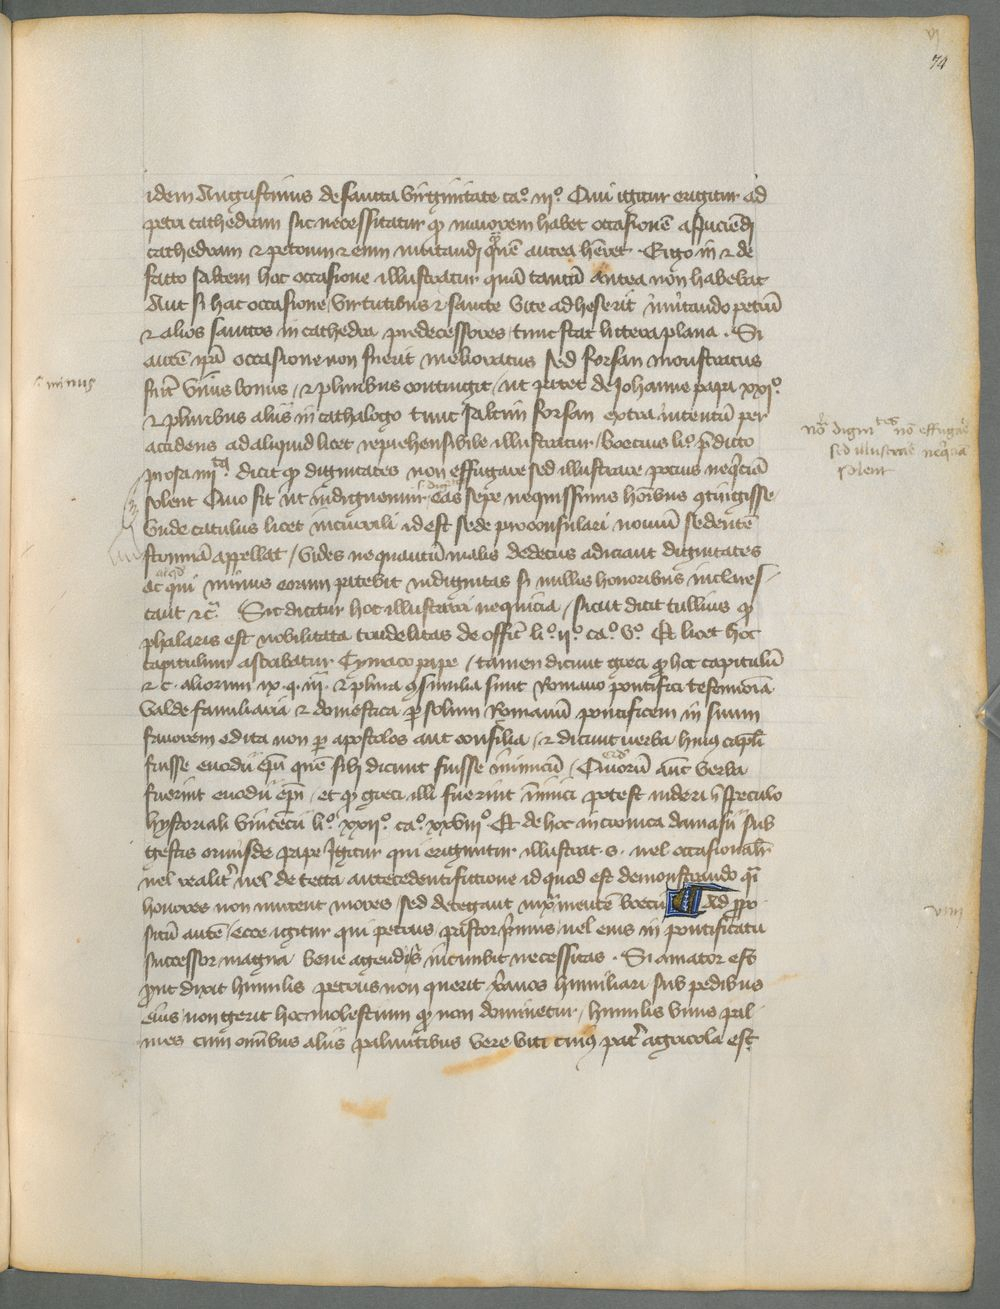 vj
74
idem Augustinus de sancta virginitate ca.º iij.º Qui igitur erigitur ad
petri cathedram sic necessitatur quod maiorem habet occasionē aspiciēdi
cathedram et petrum et eum imitandi quē antea hēret. Ergo in et de
facto saltem hoc occasione illustratur quā tantū antea non habebat
Aut si hac occasione virtutibus et sancte vite adheserit imitando petrū
et alios sanctos in cathedra predecessores tunc stat littera plana. Si
autē ipā occasione non fuerit melioratus sed forsan monstratus
fuit minus bonus, et pluribus contingit, ut patet de Johanne papa xxij.º
et pluribus aliis in cathalogo tunc saltim forsan extra intentū per
accidens ad aliquid licet reprehensibile illustratur, Boecius li.º p̄dicto
prosa iiij.ta dicit quod dignitates non effugare sed illustrare pocius neq̄ciā
solent Quo fit ut indignemur eas sepe nequissimis hoībus ꝯtigisse
Unde catulus licet in curuli id est sede proconsulari nonuiū sedentē
strumā appellat, vides ne quantū malis dedecus adiciant dignitates
ac qui minus eorum patebit indignitas si nullis honoribus inclares-
cant etc̄. Sic dicitur hoc illustrari nequicia, sicut dicit tullius quod
phalaris est nobilitata crudelitas de offic̄ li.º ij.º ca.º v.º Et licet hoc
capitulum ascribatur Symaco pape, tamen dicunt greci quod hoc capitulū
et c. aliorum ix. q. iij. et plura ꝯsimilia sunt Romano pontifici testimonia
valde familiaria et domestica per solum Romanū pontificem in suum
favorem edita non per apostolos aut consilia, et dicunt verba huius capli
fuisse enodii epī quē sibi dicunt fuisse inimicū, Quorū autē verba
fuerint enodii epī, et quod greci illi fuerint inimici potest videri in speculo
hystoriali vincencii li.º xxij.º ca.º xxviij.º Et de hoc in cronica damasii sub
gestis ormisde pape Igitur qui eriguntur illustrat. s. vel occasionalit̄
vel realit̄ vel de tecta antecedenti fictione id quod est demonstrando q̄
honores non mutent mores sed detegant iuxta mentē boecii Ad ppo-
situ autē, ecce igitur qui petrus, pastor primus, vel eius in pontificatu
successor magna bene agendi sibi incumbit necessitas. Si amator est
prout dixit humilis petrus non querit xp̄anos humiliari sub pedibus
eius, non gerit hoc molestum quod non dominetur, humilis unus pal-
mes cum omībus aliis palmitibus vere viti cuius pater agricola est
minus
Nota dignitates nō effugare
sed illustrare neq̄ciā
solent
viij